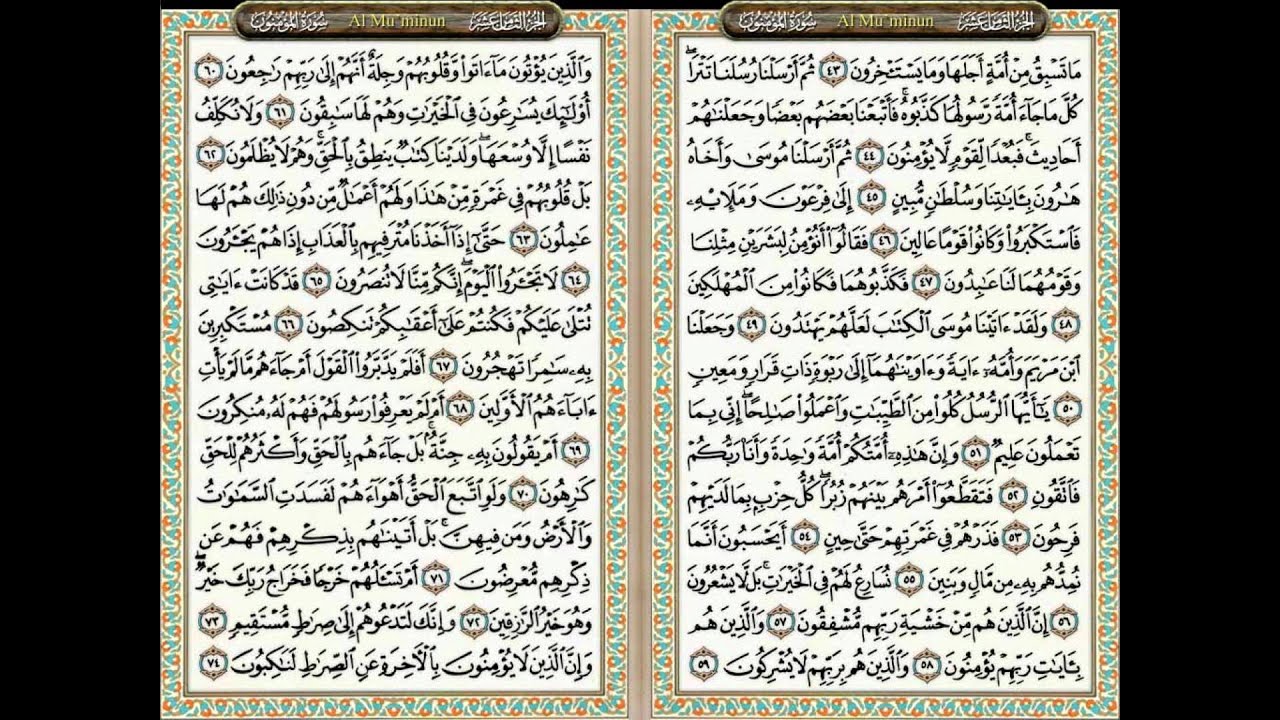 سورة المؤمنون
Al Mu'minun
الجزء الثامن عشر
مَا تَسْبِقُ مِنْ أُمَّةٍ أَجَلَهَا وَمَا يَسْتَـْٔخِرُونَ ٤٣ ثُمَّ أَرْسَلْنَا رُسُلَنَا تَتْرَا ۖ
كُلَّ مَا جَآءَ أُمَّةً رَّسُولُهَا كَذَّبُوهُ ۚ فَأَتْبَعْنَا بَعْضَهُم بَعْضًا وَجَعَلْنَٰهُمْ
أَحَادِيثَ ۚ فَبُعْدًا لِّقَوْمٍ لَّا يُؤْمِنُونَ ٤٤ ثُمَّ أَرْسَلْنَا مُوسَىٰ وَأَخَاهُ
هَٰرُونَ بِـَٔايَٰتِنَا وَسُلْطَٰنٍ مُّبِينٍ ٤٥ إِلَىٰ فِرْعَوْنَ وَمَلَإِيْهِۦ
فَٱسْتَكْبَرُوا۟ وَكَانُوا۟ قَوْمًا عَالِينَ ٤٦ فَقَالُوٓا۟ أَنُؤْمِنُ لِبَشَرَيْنِ مِثْلِنَا
وَقَوْمُهُمَا لَنَا عَٰبِدُونَ ٤٧ فَكَذَّبُوهُمَا فَكَانُوا۟ مِنَ ٱلْمُهْلَكِينَ
٤٨ وَلَقَدْ ءَاتَيْنَا مُوسَى ٱلْكِتَٰبَ لَعَلَّهُمْ يَهْتَدُونَ ٤٩ وَجَعَلْنَا
ٱبْنَ مَرْيَمَ وَأُمَّهُۥٓ ءَايَةً وَءَاوَيْنَٰهُمَآ إِلَىٰ رَبْوَةٍ ذَاتِ قَرَارٍ وَمَعِينٍ
٥٠ يَٰٓأَيُّهَا ٱلرُّسُلُ كُلُوا۟ مِنَ ٱلطَّيِّبَٰتِ وَٱعْمَلُوا۟ صَٰلِحًا ۖ إِنِّى بِمَا
تَعْمَلُونَ عَلِيمٌ ٥١ وَإِنَّ هَٰذِهِۦٓ أُمَّتُكُمْ أُمَّةً وَٰحِدَةً وَأَنَا۠ رَبُّكُمْ
فَٱتَّقُونِ ٥٢ فَتَقَطَّعُوٓا۟ أَمْرَهُم بَيْنَهُمْ زُبُرًا ۖ كُلُّ حِزْبٍۭ بِمَا لَدَيْهِمْ
فَرِحُونَ ٥٣ فَذَرْهُمْ فِى غَمْرَتِهِمْ حَتَّىٰ حِينٍ ٥٤ أَيَحْسَبُونَ أَنَّمَا
نُمِدُّهُم بِهِۦ مِن مَّالٍ وَبَنِينَ ٥٥ نُسَارِعُ لَهُمْ فِى ٱلْخَيْرَٰتِ ۚ بَل لَّا يَشْعُرُونَ
٥٦ إِنَّ ٱلَّذِينَ هُم مِّنْ خَشْيَةِ رَبِّهِم مُّشْفِقُونَ ٥٧ وَٱلَّذِينَ هُم
بِـَٔايَٰتِ رَبِّهِمْ يُؤْمِنُونَ ٥٨ وَٱلَّذِينَ هُم بِرَبِّهِمْ لَا يُشْرِكُونَ ٥٩
سورة المؤمنون
Al Mu'minun
الجزء الثامن عشر
وَٱلَّذِينَ يُؤْتُونَ مَآ ءَاتَوا۟ وَّقُلُوبُهُمْ وَجِلَةٌ أَنَّهُمْ إِلَىٰ رَبِّهِمْ رَٰجِعُونَ ٦٠
أُو۟لَٰٓئِكَ يُسَٰرِعُونَ فِى ٱلْخَيْرَٰتِ وَهُمْ لَهَا سَٰبِقُونَ ٦١ وَلَا نُكَلِّفُ
نَفْسًا إِلَّا وُسْعَهَا ۖ وَلَدَيْنَا كِتَٰبٌ يَنطِقُ بِٱلْحَقِّ ۚ وَهُمْ لَا يُظْلَمُونَ ٦٢
بَلْ قُلُوبُهُمْ فِى غَمْرَةٍ مِّنْ هَٰذَا وَلَهُمْ أَعْمَٰلٌ مِّن دُونِ ذَٰلِكَ هُمْ لَهَا
عَٰمِلُونَ ٦٣ حَتَّىٰٓ إِذَآ أَخَذْنَا مُتْرَفِيهِم بِٱلْعَذَابِ إِذَا هُمْ يَجْـَٔرُونَ
٦٤ لَا تَجْـَٔرُوا۟ ٱلْيَوْمَ ۖ إِنَّكُم مِّنَّا لَا تُنصَرُونَ ٦٥ قَدْ كَانَتْ ءَايَٰتِى
تُتْلَىٰ عَلَيْكُمْ فَكُنتُمْ عَلَىٰٓ أَعْقَٰبِكُمْ تَنكِصُونَ ٦٦ مُسْتَكْبِرِينَ
بِهِۦ سَٰمِرًا تَهْجُرُونَ ٦٧ أَفَلَمْ يَدَّبَّرُوا۟ ٱلْقَوْلَ أَمْ جَآءَهُم مَّا لَمْ يَأْتِ
ءَابَآءَهُمُ ٱلْأَوَّلِينَ ٦٨ أَمْ لَمْ يَعْرِفُوا۟ رَسُولَهُمْ فَهُمْ لَهُۥ مُنكِرُونَ
٦٩ أَمْ يَقُولُونَ بِهِۦ جِنَّةٌۢ ۚ بَلْ جَآءَهُم بِٱلْحَقِّ وَأَكْثَرُهُمْ لِلْحَقِّ
كَٰرِهُونَ ٧٠ وَلَوِ ٱتَّبَعَ ٱلْحَقُّ أَهْوَآءَهُمْ لَفَسَدَتِ ٱلسَّمَٰوَٰتُ
وَٱلْأَرْضُ وَمَن فِيهِنَّ ۚ بَلْ أَتَيْنَٰهُم بِذِكْرِهِمْ فَهُمْ عَن
ذِكْرِهِم مُّعْرِضُونَ ٧١ أَمْ تَسْـَٔلُهُمْ خَرْجًا فَخَرَاجُ رَبِّكَ خَيْرٌ ۖ
وَهُوَ خَيْرُ ٱلرَّٰزِقِينَ ٧٢ وَإِنَّكَ لَتَدْعُوهُمْ إِلَىٰ صِرَٰطٍ مُّسْتَقِيمٍ ٧٣
وَإِنَّ ٱلَّذِينَ لَا يُؤْمِنُونَ بِٱلْءَاخِرَةِ عَنِ ٱلصِّرَٰطِ لَنَٰكِبُونَ ٧٤